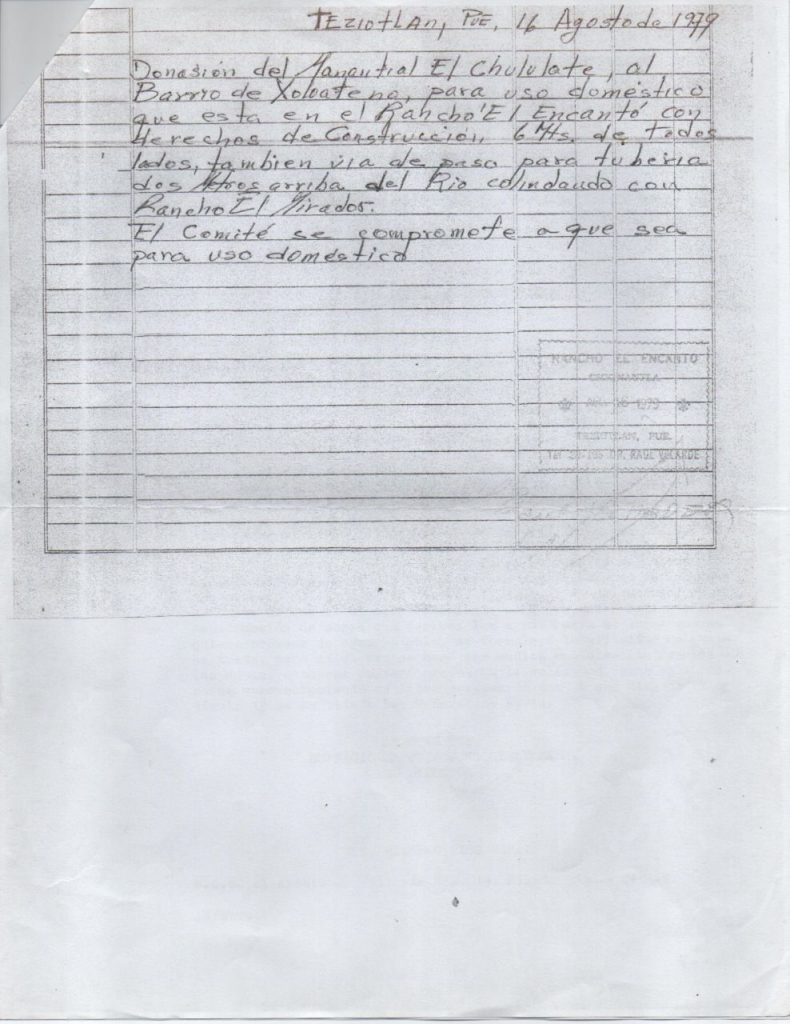 TEZIOTLAN, PUE. 16 Agosto de 1979
Donasión del Manantial El Chululate, al
Barrio de Xoloateno, para uso doméstico
que esta en el Rancho El Encantó con
derechos de Construcción 6 Mts. de todos
lados, tambien via de paso para tuberia
dos Mtros arriba del Rio colindando con
Rancho El Mirador.
El Comité se compromete a que sea
para uso doméstico
RANCHO EL ENCANTO
1979
PUE.
DR. RAUL